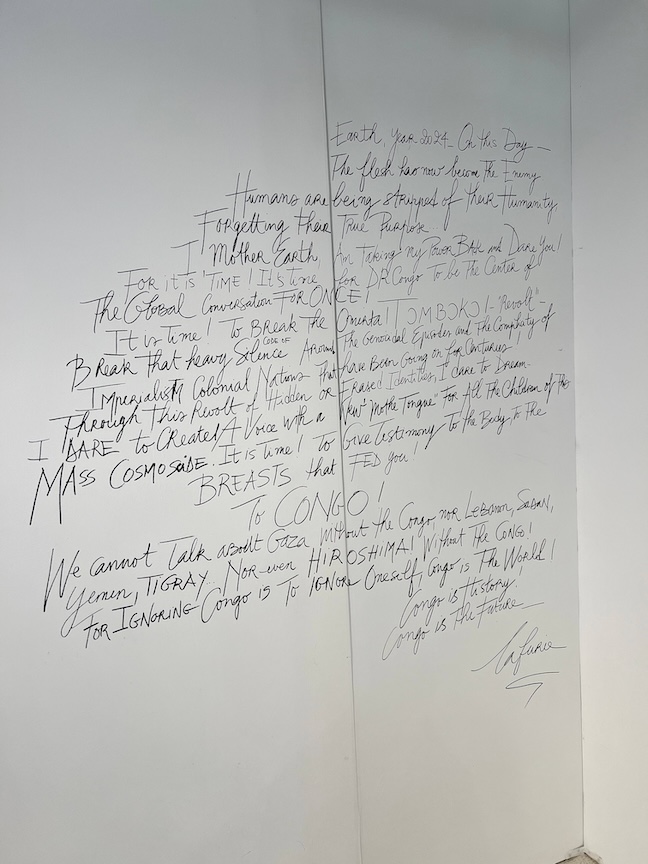 Earth, Year 2024_ On this Day_
The flesh has now become The Enemy
Humans are being stripped of their Humanity.
Forgetting their True Purpose.
I Mother Earth, Am Taking my Power Back and Dare You!
For it is TIME! It's time for DR Congo To be The Center of
The Global Conversation For ONCE!
It is Time! To Break The Omerta! ITƆMBƆKƆ! - "Revolt" -
Break that heavy Code of Silence Around The Genocidal Episodes and The Complicity of
Imperialist Colonial Nations that have Been Going on for Centuries
Through This Revolt of Hidden or Erased Identities, I dare to Dream_
I DARE to Created A Voice with a New "Mothe Tongue" For All The Children of This
Mass Cosmoscide. It is Time! To Give testimony to the Body To The
BREASTS that FED you!
To CONGO!
We cannot Talk about Gaza without the Congo, nor Lebanon, Sudan,
Yemen, TIGRAY... Nor even HIROSHIMA! Without The Congo!
For Ignoring Congo is To Ignore Oneself, Congo is The World!
Congo is History!
Congo is The Future_
Lafurie